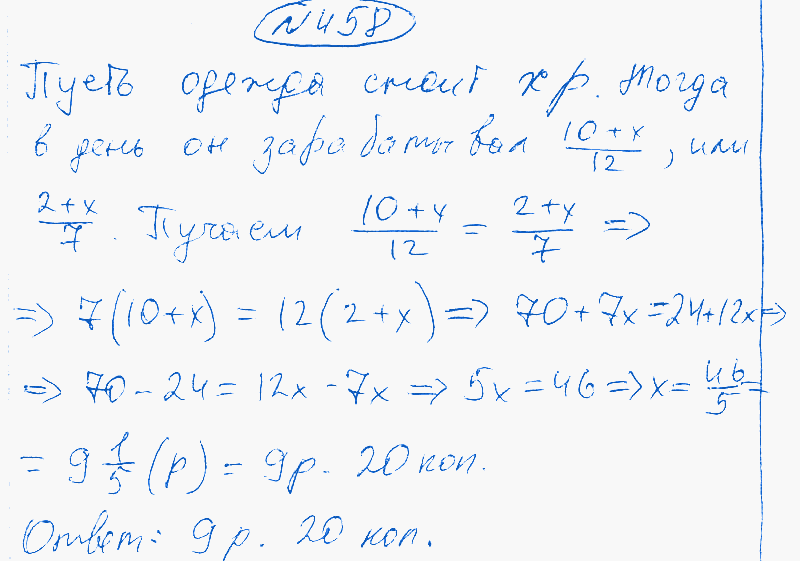 №458
Пусть одежда стоит x р. Тогда
в день он зарабатывал (10+x)/12, или
(2+x)/7. Пучаем (10+x)/12 = (2+x)/7 =>
=> 7(10+x) = 12(2+x) => 70+7x=24+12x=>
=> 70-24=12x-7x => 5x=46 => x=46/5=
= 9 1/5 (р) = 9р. 20 коп.
Ответ: 9 р. 20 коп.